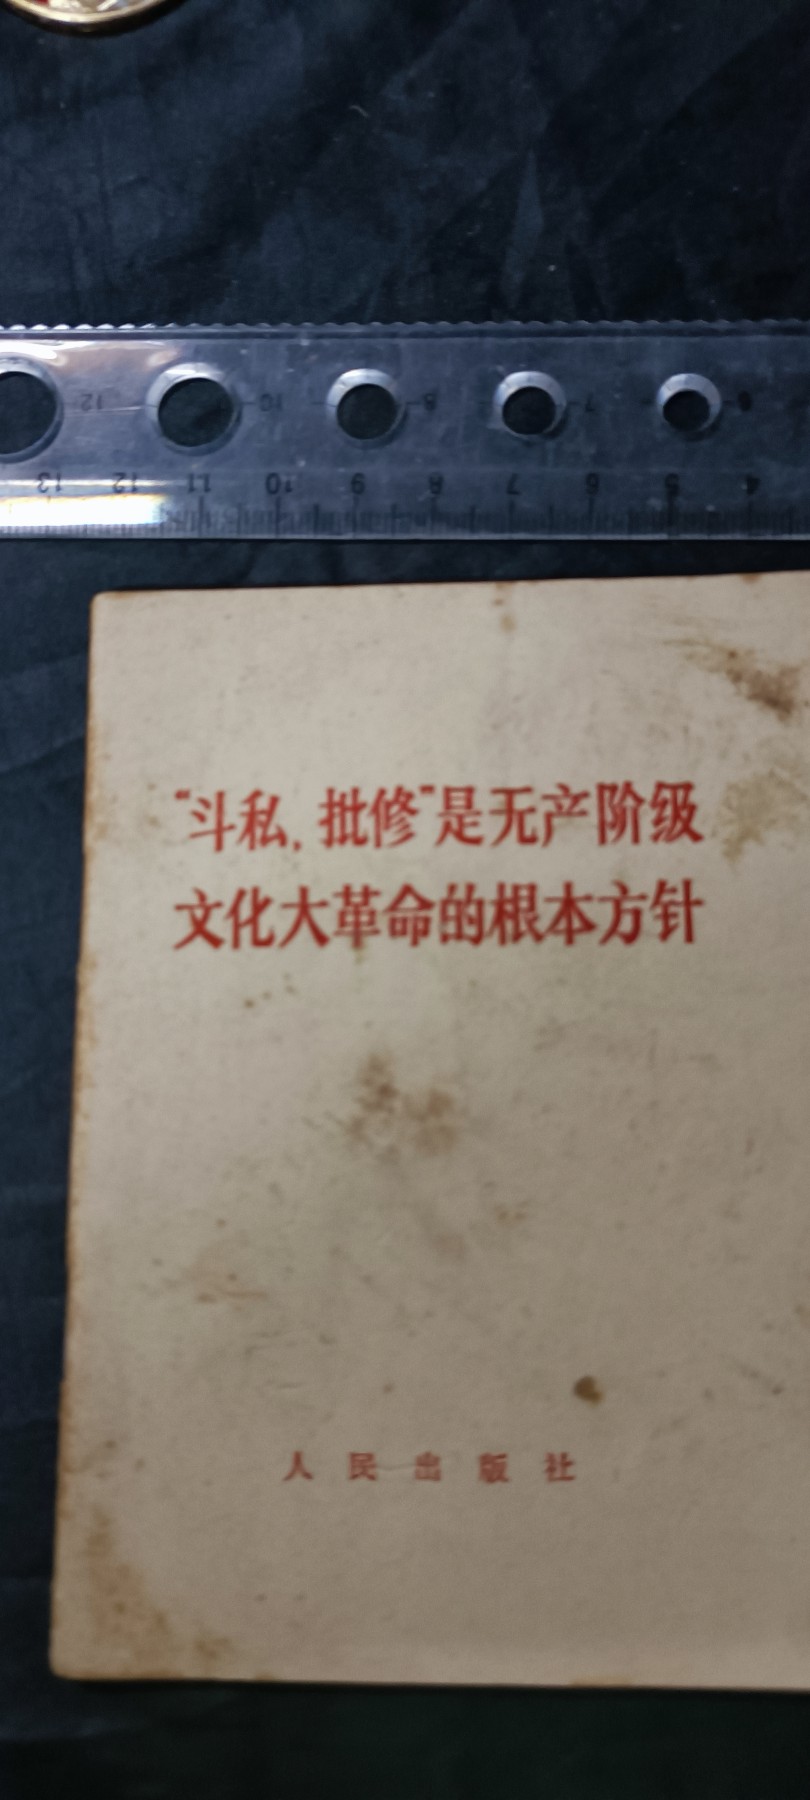 12 10 8 7 6
13 12 11 10 9 8 7 6 5 4
“斗私，批修”是无产阶级
文化大革命的根本方针
人民出版社